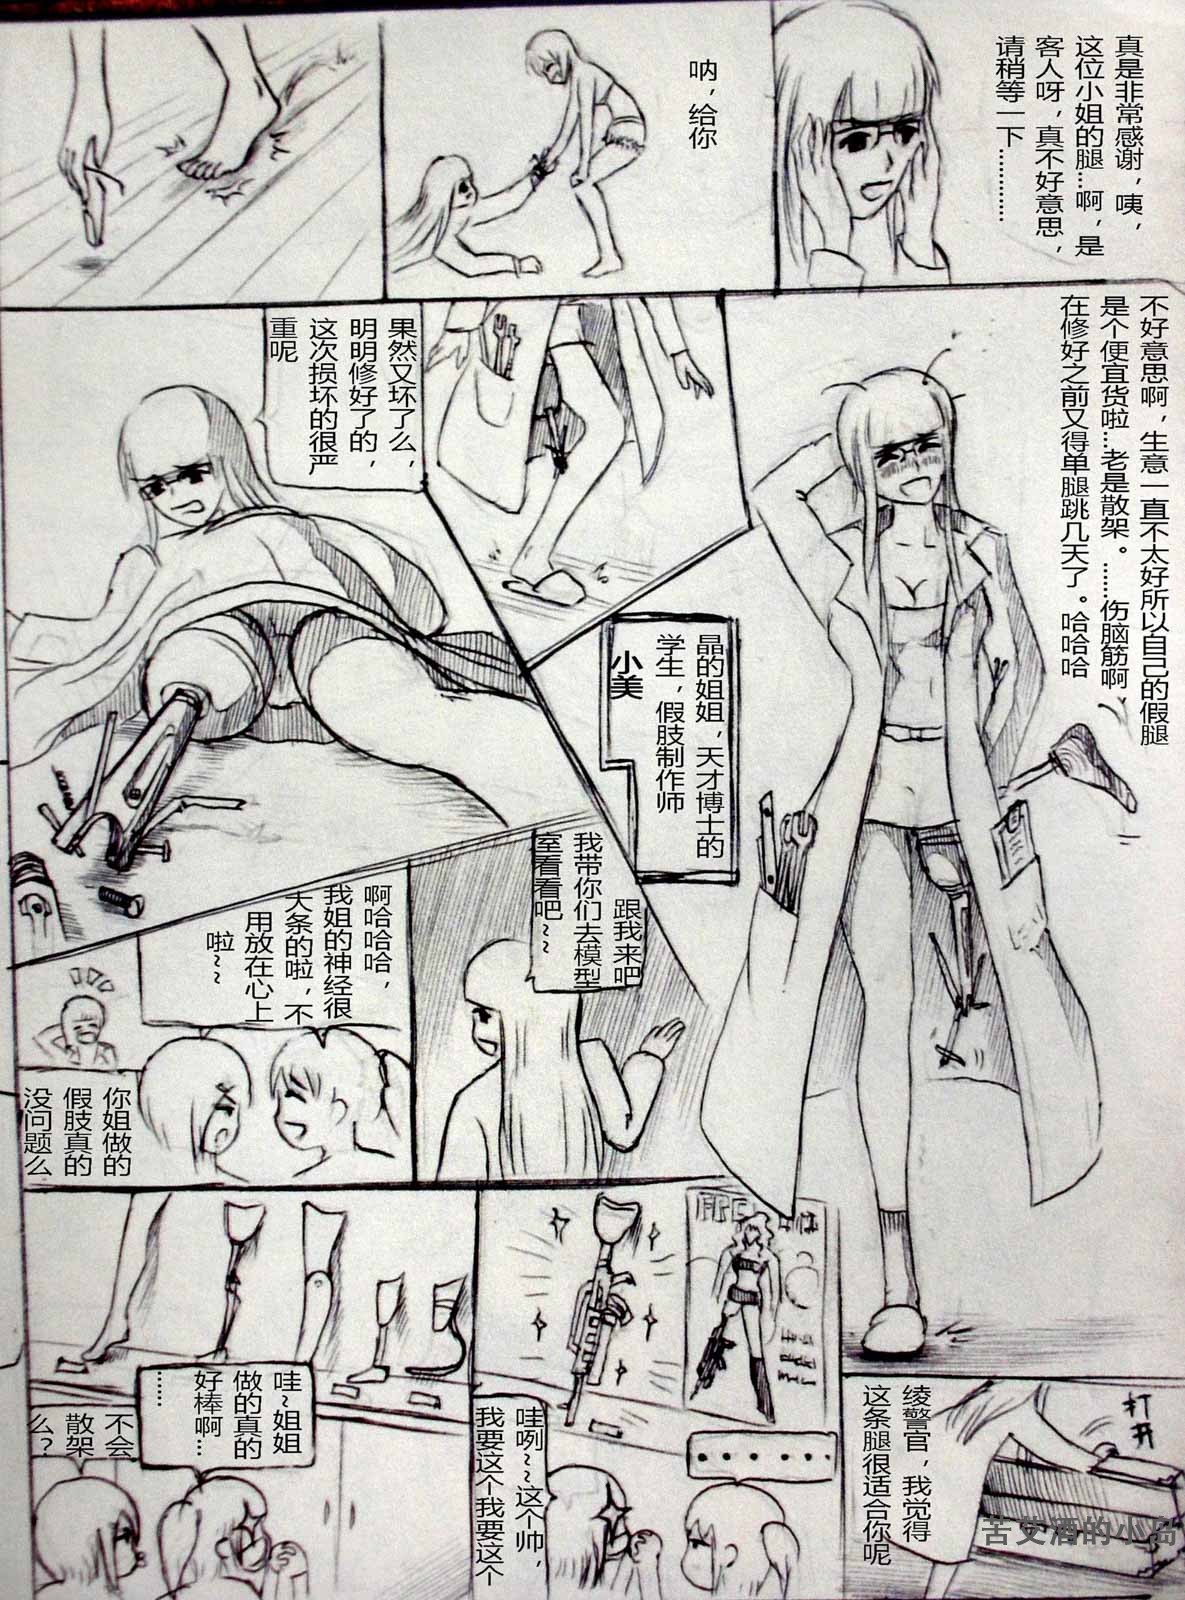 真是非常感谢，咦，
这位小姐的腿…啊，是
客人呀，真不好意思，
请稍等一下……………
呐，给你
不好意思啊，生意一直不太好所以自己的假腿
是个便宜货啦…老是散架。……伤脑筋啊，
在修好之前又得单腿跳几天了。哈哈哈
果然又坏了么，
明明修好了的，
这次损坏的很严
重呢
晶的姐姐，天才博士的
学生，假肢制作师
小美
跟我来吧
我带你们去模型
室看看吧~~
啊哈哈哈，
我姐的神经很
大条的啦，不
用放在心上
啦~~
你姐做的
假肢真的
没问题么
打开
绫警官，我觉得
这条腿很适合你呢
......
哇咧~~这个帅，
我要这个我要这个
哇~姐姐
做的真的
好棒啊…
……
不会
散架
么？
苦艾酒的小岛